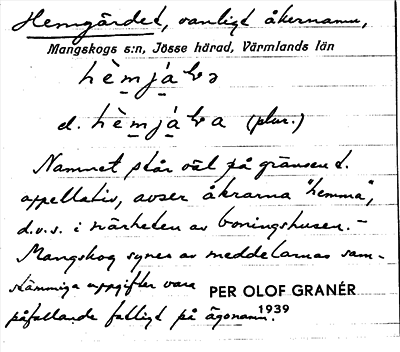 Hemgärdet, vanligt åkernamn,
Mangskogs s:n, Jösse härad, Värmlands län
d. (plur.)
Namnet står väl på gränsen t.
appellativ, avser åkrarna "hemma",
d.v.s. i närheten av boningshusen. –
Mangskog synes av meddelarnas sam-
stämmiga uppgifter vara
PER OLOF GRANÉR
1939
påfallande fattigt på ägonamn.